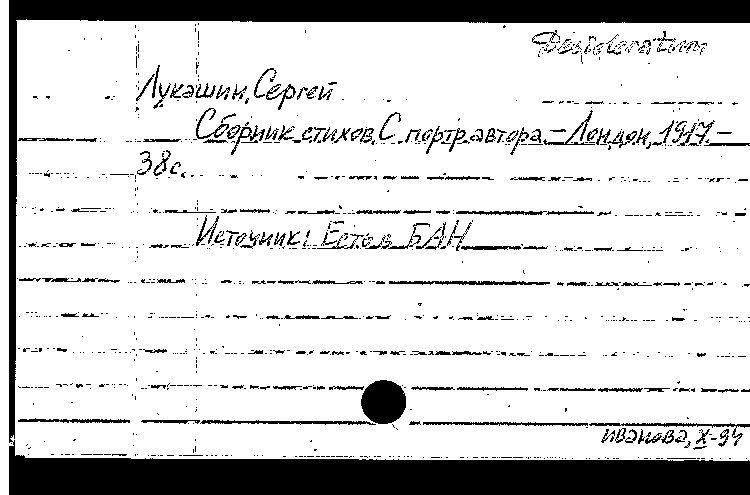 Desideratum
Лукашин, Сергей
Сборник стихов. С портр. автора. – Лондон, 1917. –
38 с.
Источник: Есть в БАН
Иванова, X-94